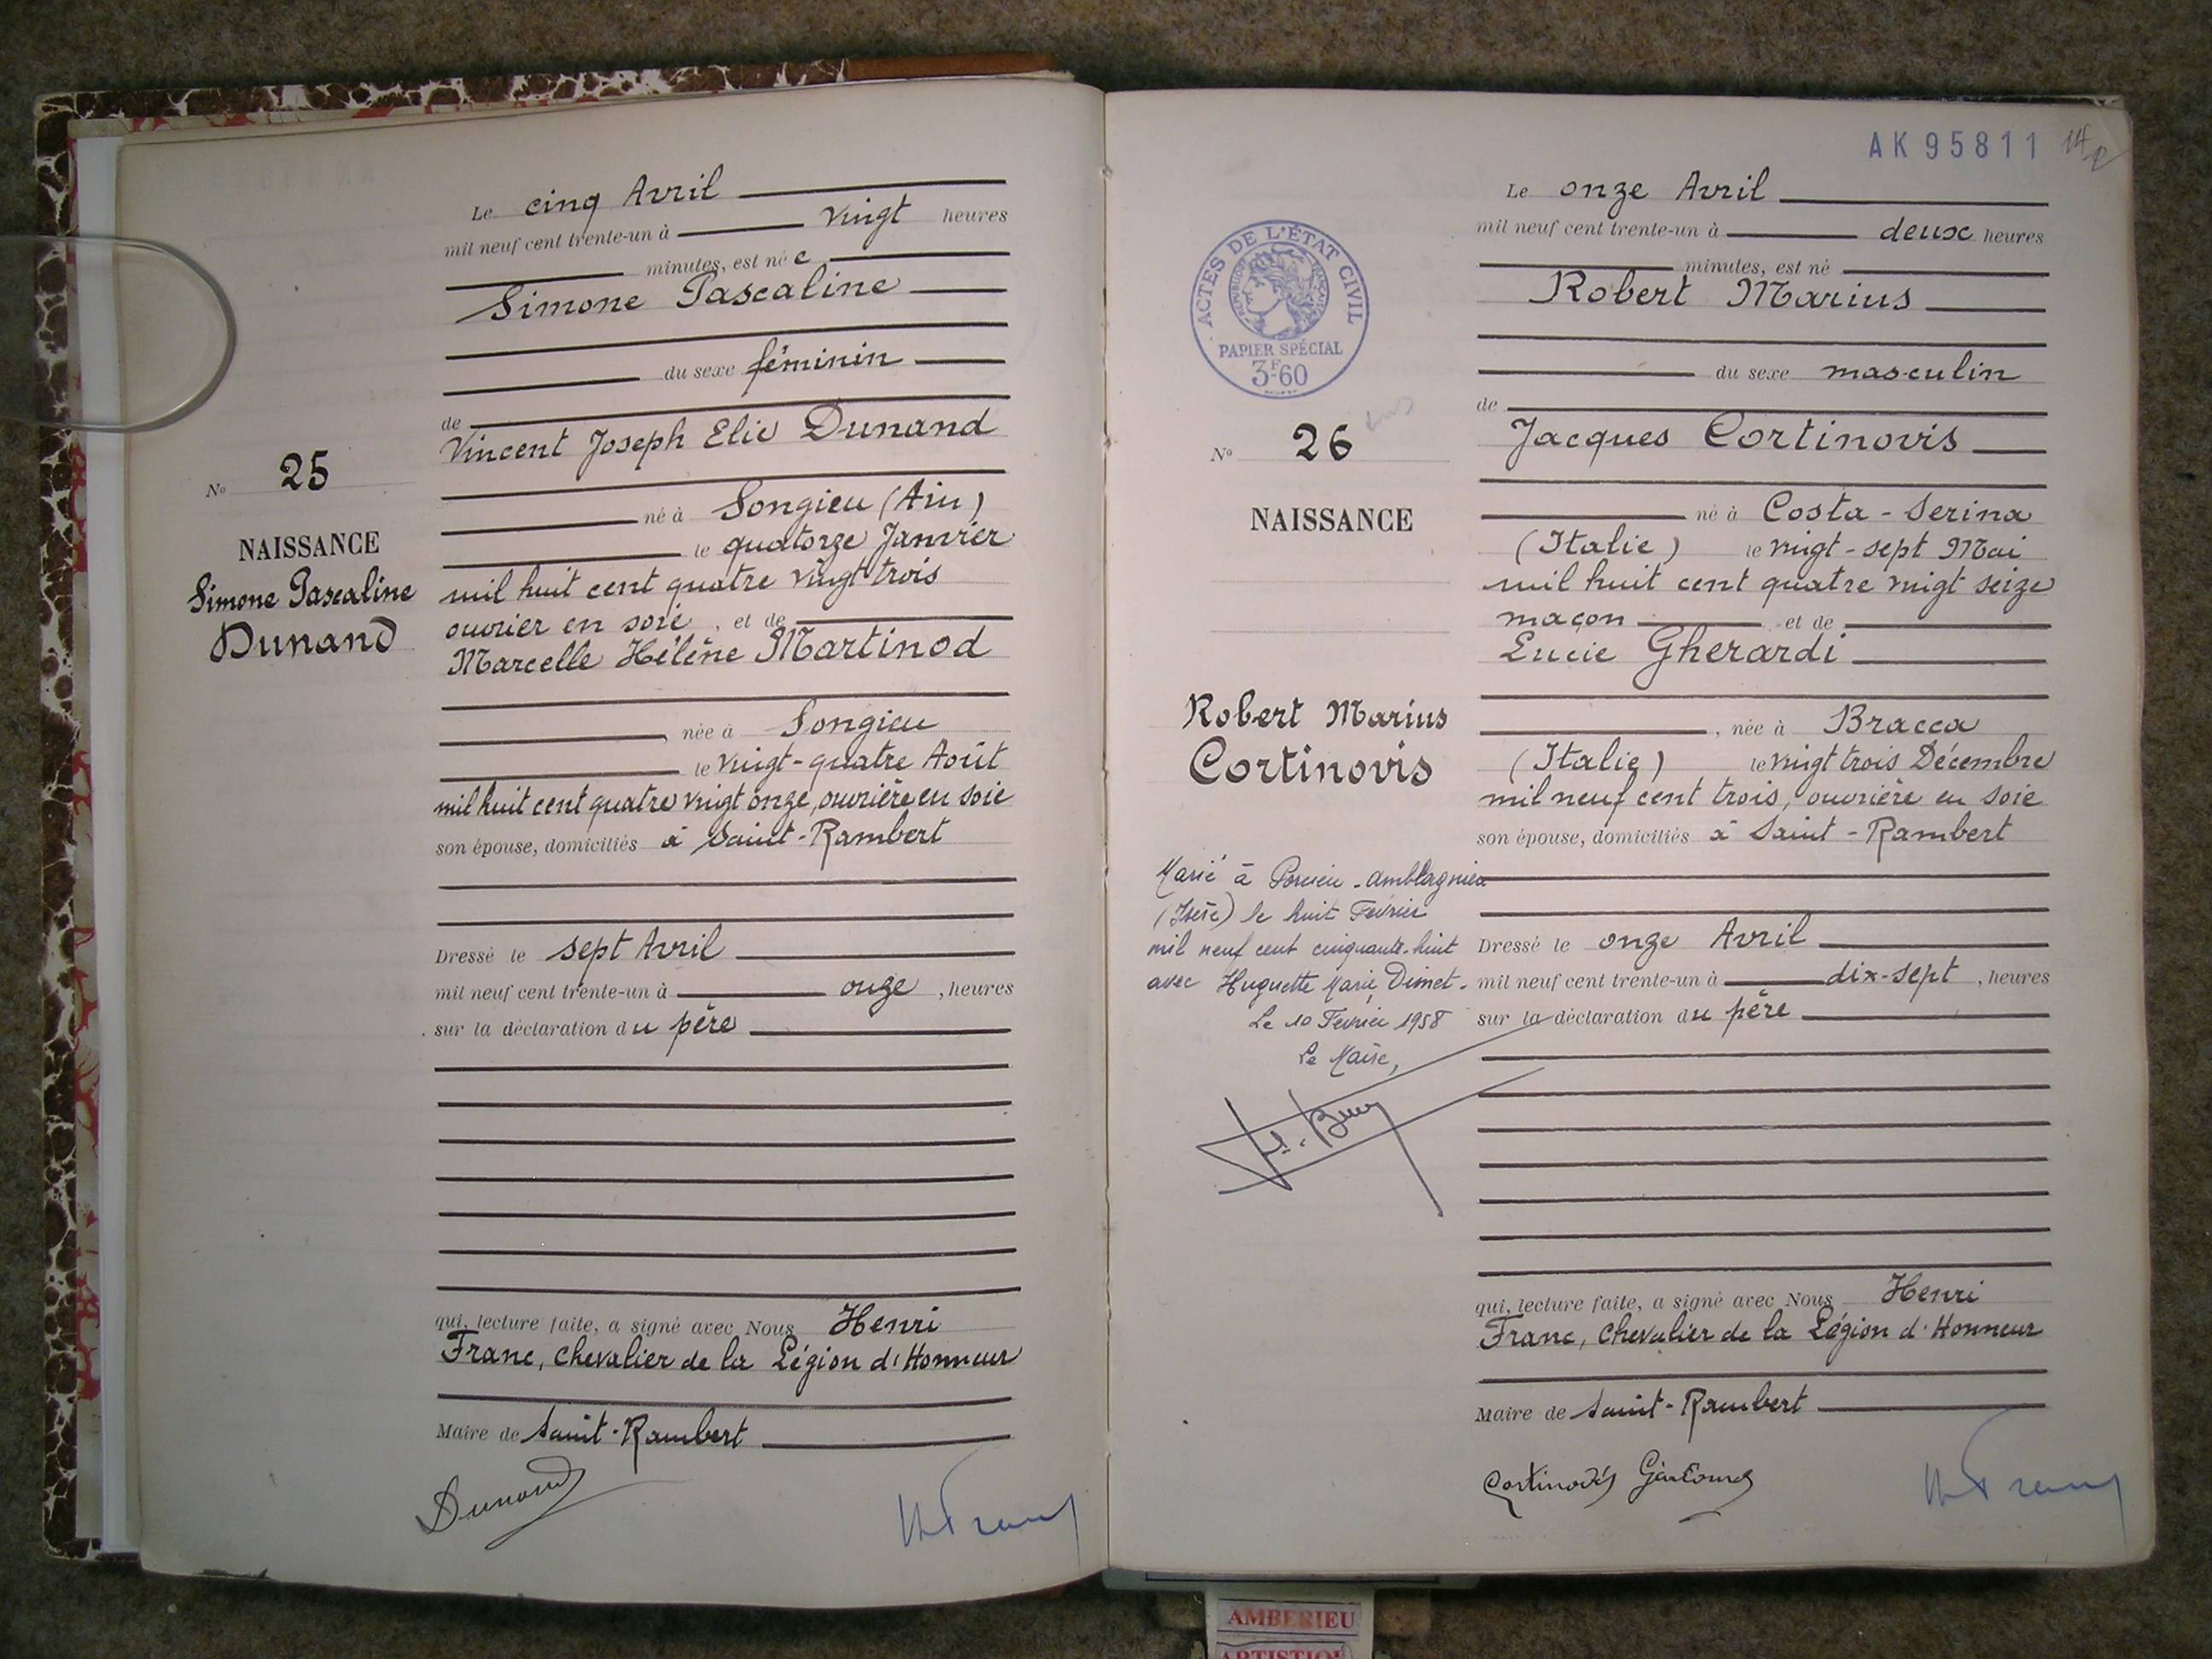 Le cinq Avril
mil neuf cent trente-un à vingt heures
minutes, est née
Simone Pascaline
du sexe féminin
de
Vincent Joseph Elie Dunand
né à Songieu (Ain)
le quatorze Janvier
mil huit cent quatre vingt trois
ouvrier en soie, et de
Marcelle Hélène Martinod
née à Songieu
le vingt-quatre Août
mil huit cent quatre vingt onze, ouvrière en soie
son épouse, domiciliés à Saint-Rambert
Dressé le sept Avril
mil neuf cent trente-un à onze, heures
sur la déclaration du père
qui, lecture faite, a signé avec Nous Henri
Franc, chevalier de la Légion d'Honneur
Maire de Saint-Rambert
Dunand
No 25
NAISSANCE
Simone Pascaline
Dunand
AK 95811
Le onze Avril
mil neuf cent trente-un à deux heures
minutes, est né
Robert Marius
du sexe masculin
de
Jacques Cortinovis
né à Costa-Serina
(Italie) le vingt-sept Mai
mil huit cent quatre vingt seize
maçon et de
Lucie Gherardi
, née à Bracca
(Italie) le vingt trois Décembre
mil neuf cent trois, ouvrière en soie
son épouse, domiciliés à Saint-Rambert
Dressé le onze Avril
mil neuf cent trente-un à dix-sept, heures
sur la déclaration du père
qui, lecture faite, a signé avec Nous Henri
Franc, chevalier de la Légion d'Honneur
Maire de Saint-Rambert
Cortinovis
ACTES DE L'ÉTAT CIVIL
RÉPUBLIQUE FRANÇAISE
PAPIER SPÉCIAL
3F60
No 26
NAISSANCE
Robert Marius
Cortinovis
Marié à Porcieu-Amblagnieu
(Isère) le huit Février
mil neuf cent cinquante-huit
avec Huguette Marie Dimet.
Le 10 Février 1958
Le Maire,
AMBERIEU